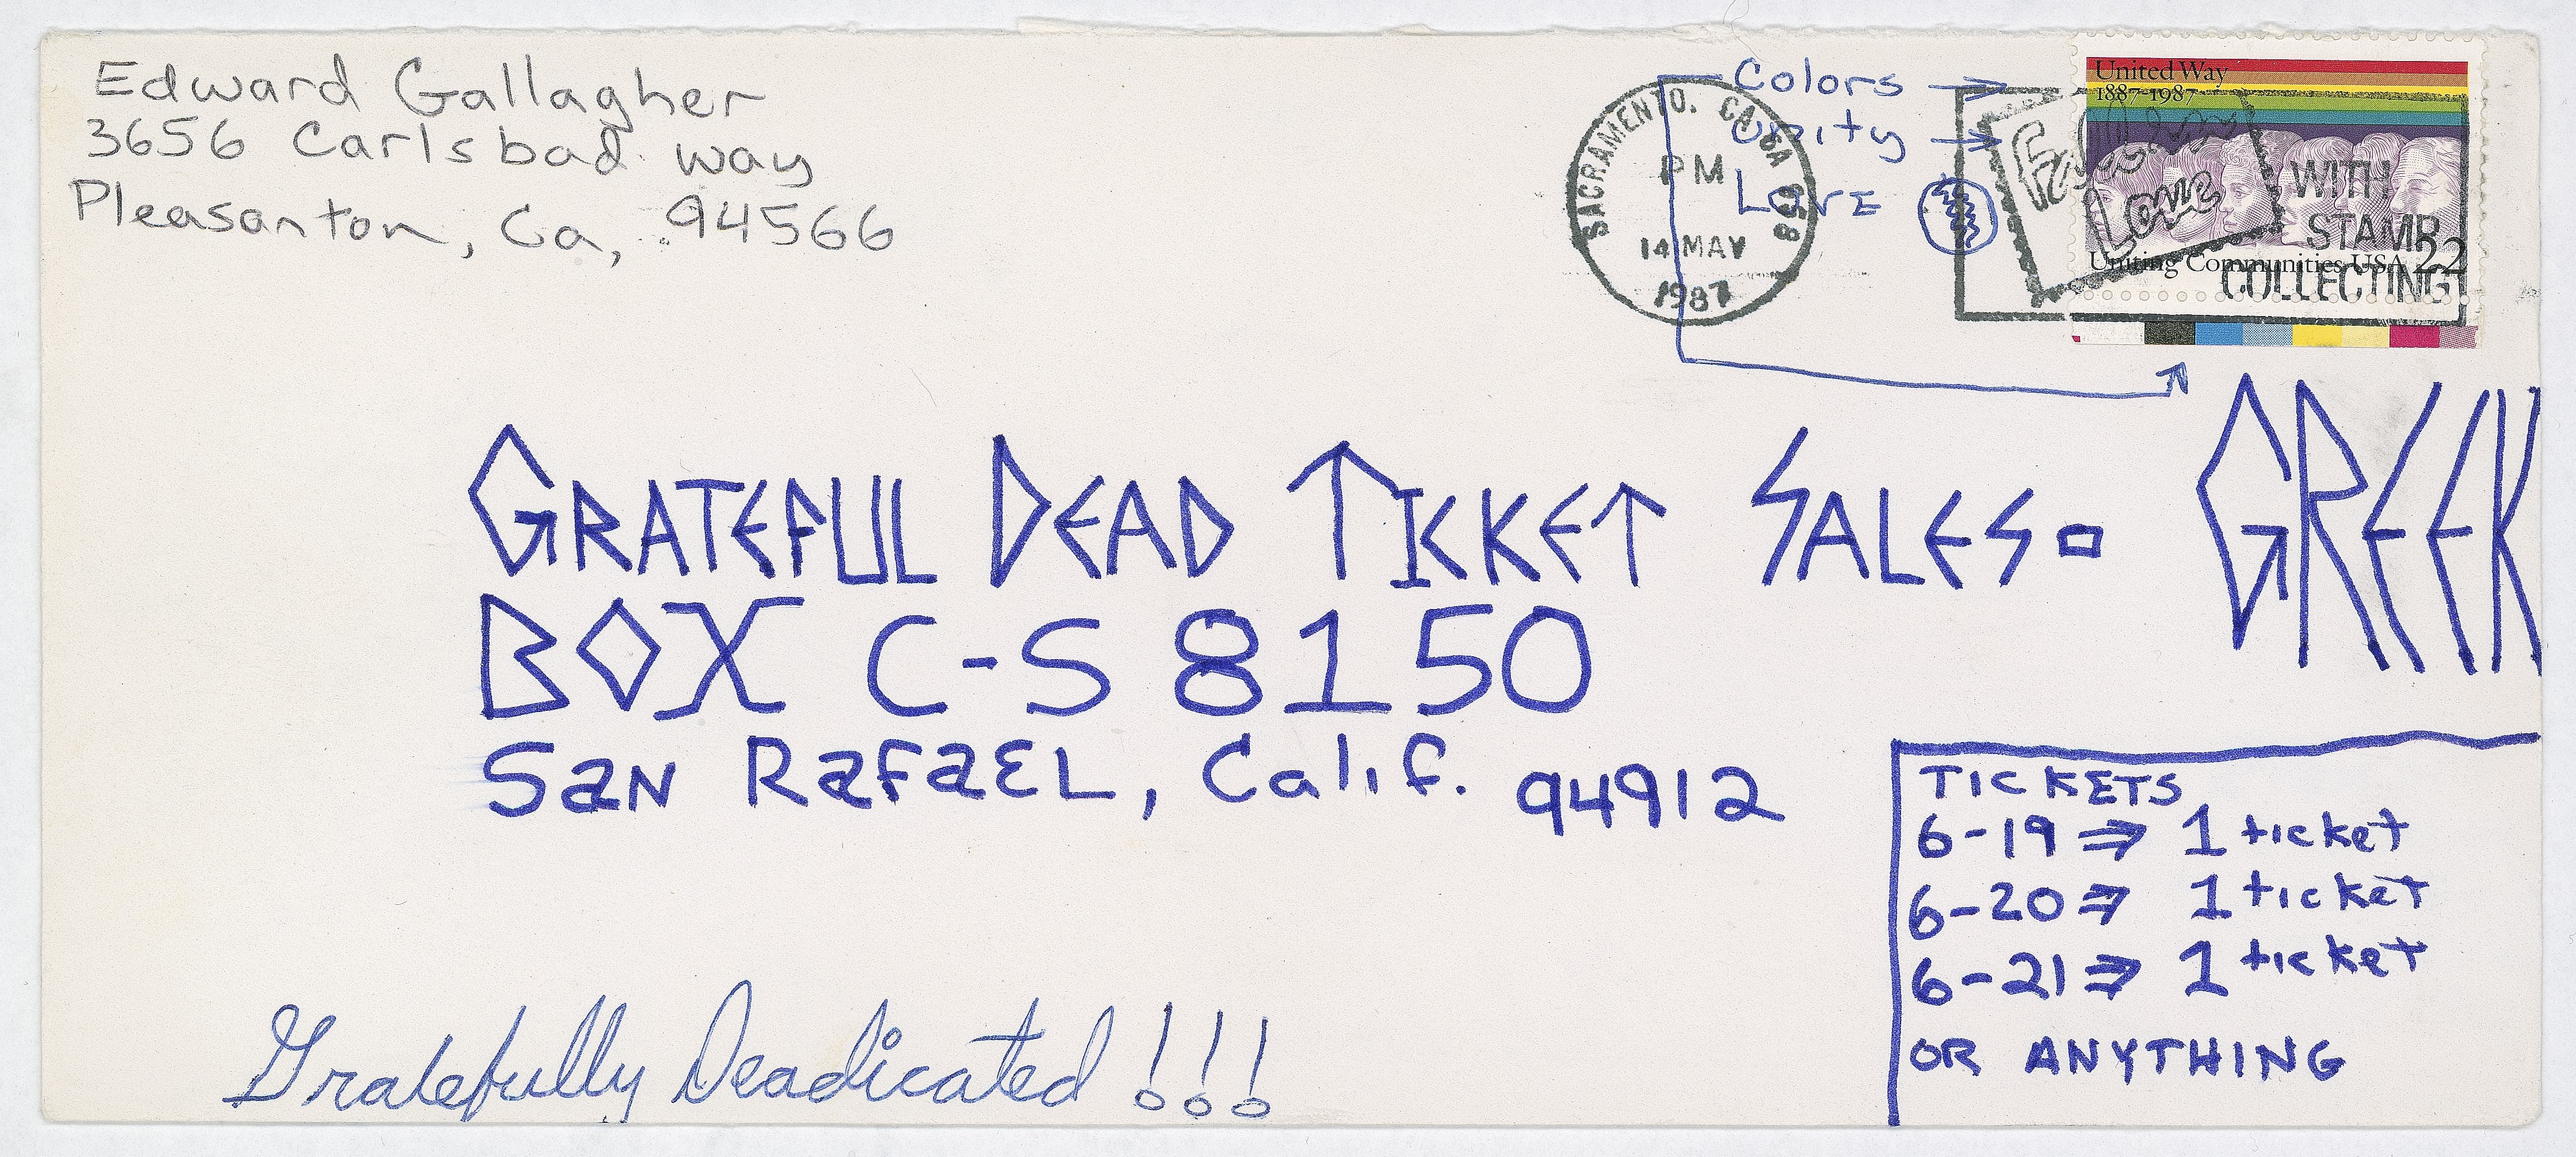 Edward Gallagher
3656 Carlsbad way
Pleasanton, Ca, 94566
SACRAMENTO, CA USA 958
PM
14 MAY
1987
Colors →
unity →
LOVE
United Way
1887-1987
Uniting Communities USA 22
Fall In
Love
WITH
STAMP
COLLECTING
GRATEFUL DEAD TICKET SALES= GREEK
BOX C-S 8150
SaN RafaEL, Calif. 94912
TICKETS
6-19 ⇒ 1 ticket
6-20 ⇒ 1 ticket
6-21 ⇒ 1 ticket
OR ANYTHING
Gratefully Deadicated !!!